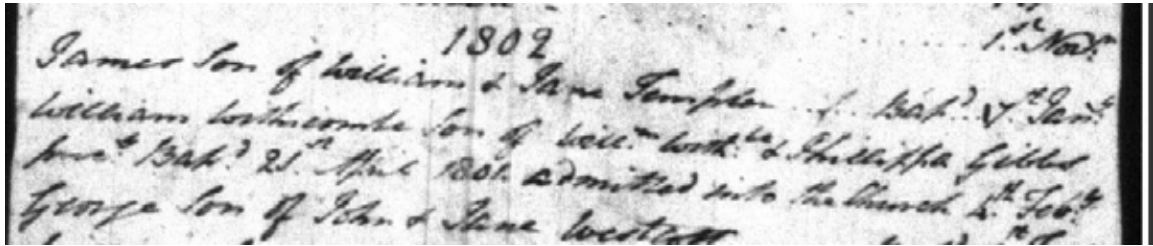 1802
1st Novr
James Son of William & Jane Templer Bapd 7th Jany
William Withicombe Son of Willm & Phillippa Gibbs
privy Bapd 21st April 1801 admitted into the Church 2d Feby
George Son of John & Jane Westcott